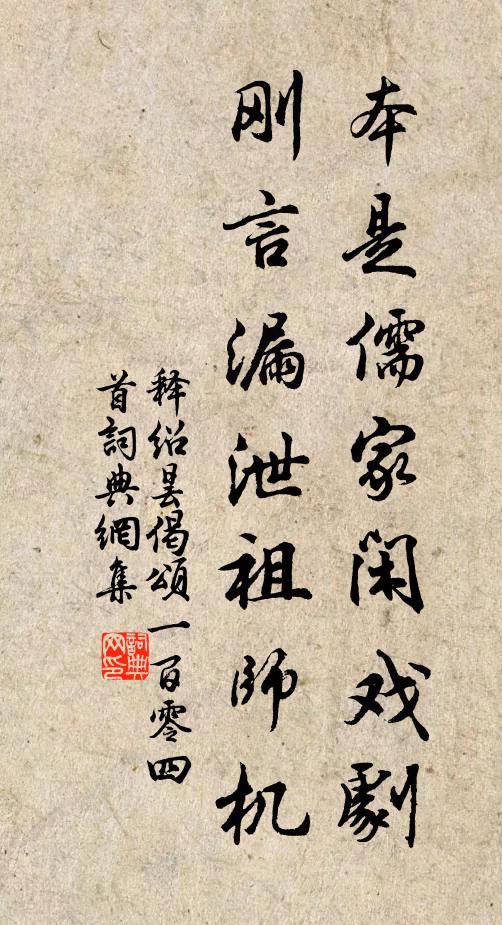 本是儒家闲戏劇
刚言漏泄祖師机
释绍昙偈頌一百零四
首詞典網集
詞典
网印